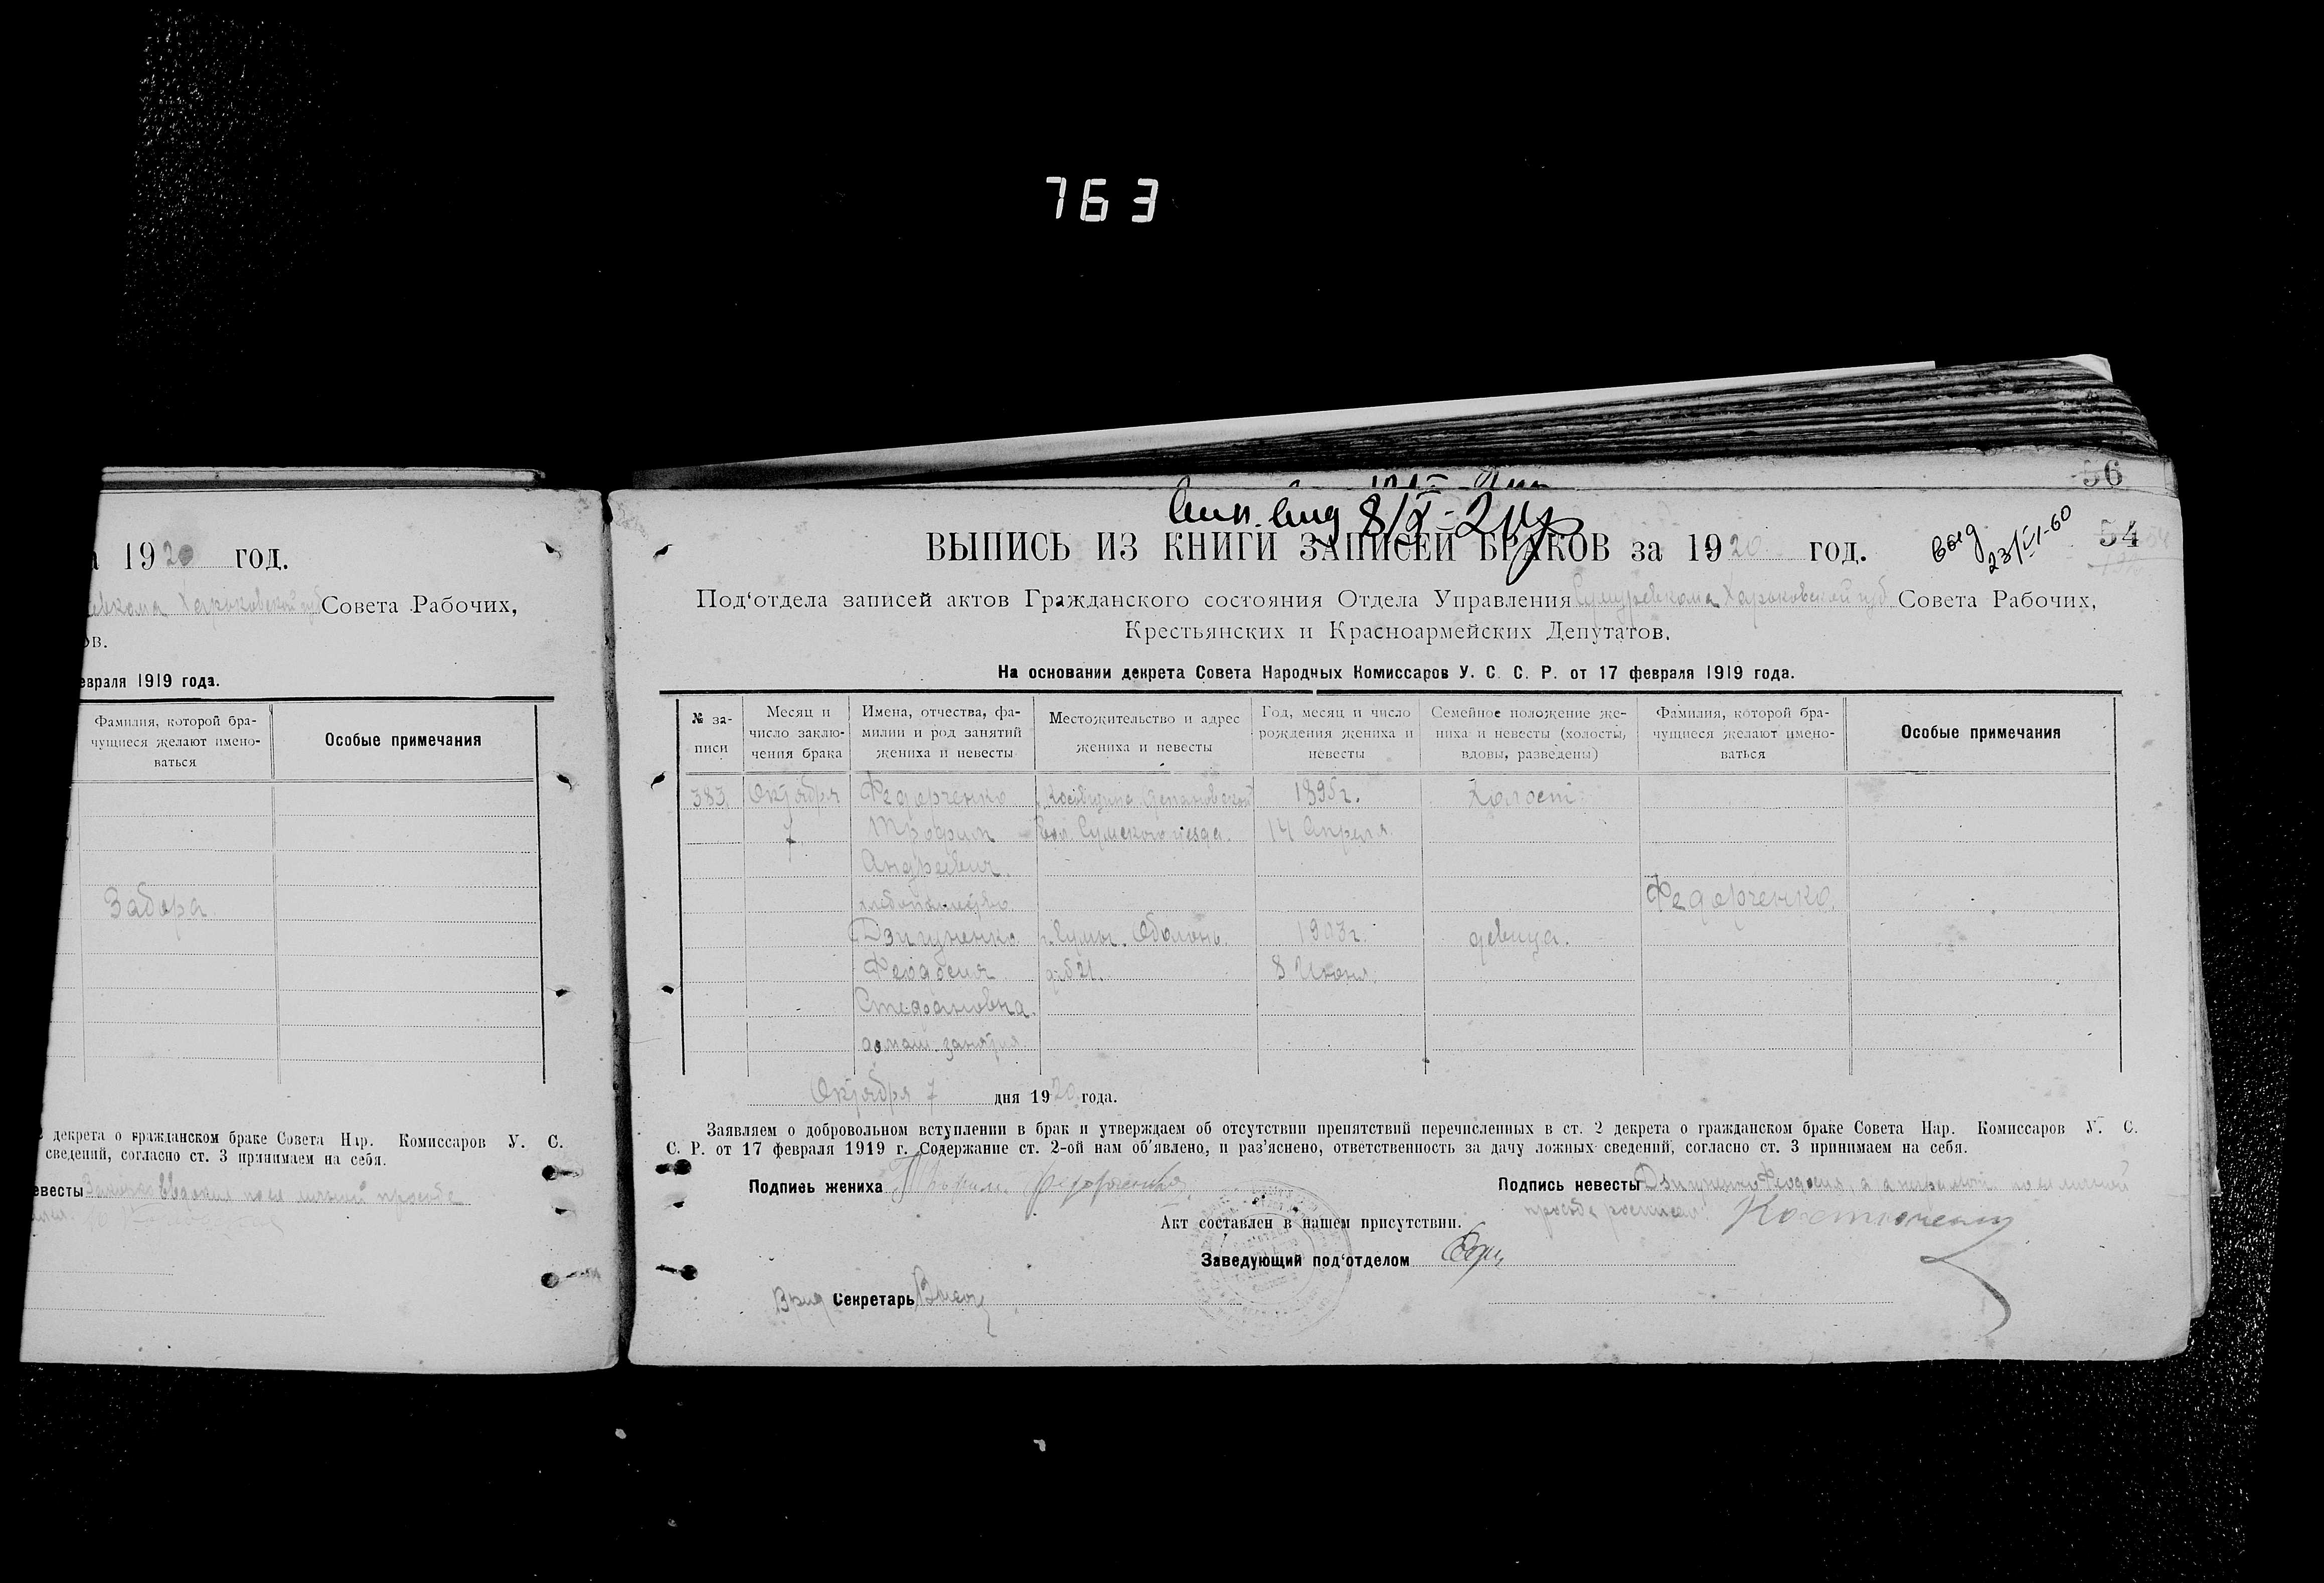 763
56
1920 год.
Харьковской губ Совета Рабочих,
ов.
евраля 1919 года.
Фамилия, которой бра-
чущиеся желают имено-
ваться
Особые примечания
Забора
декрета о гражданском браке Совета Нар. Комиссаров У. С.
сведений, согласно ст. 3 принимаем на себя.
евесты
8/X-21
ВЫПИСЬ ИЗ КНИГИ ЗАПИСЕЙ БРАКОВ за 1920 год.
54
23/VI-60
Под‘отдела записей актов Гражданского состояния Отдела Управления Сумуревкома Харьковской губ Совета Рабочих,
Крестьянских и Красноармейских Депутатов.
На основании декрета Совета Народных Комиссаров У. С. С. Р. от 17 февраля 1919 года.
№ за-
писи
Месяц и
число заклю-
чения брака
Имена, отчества, фа-
милии и род занятий
жениха и невесты
Местожительство и адрес
жениха и невесты
Год, месяц и число
рождения жениха и
невесты
Семейное положение же-
ниха и невесты (холосты,
вдовы, разведены)
Фамилия, которой бра-
чущиеся желают имено-
ваться
Особые примечания
383 Октября Федорченко 1895г. Холост
7 Трофим вол. Сумского уезда. 14 Апреля
Андреевич.
хлебопашество. Федорченко.
Дзигуненко г. Сумы. Оболонь. 1903г. девица.
Феодосия д. б 21. 8 Июня.
Стефановна.
домаш. занятия.
Октября 7 дня 1920 года.
Заявляем о добровольном вступлении в брак и утверждаем об отсутствии препятствий перечисленных в ст. 2 декрета о гражданском браке Совета Нар. Комиссаров У. С.
С. Р. от 17 февраля 1919 г. Содержание ст. 2-ой нам об'явлено, и раз'яснено, ответственность за дачу ложных сведений, согласно ст. 3 принимаем на себя.
Подпись жениха Трофим Федорченко
Подпись невесты Дзигуненко Феодосия, а
Акт составлен в нашем присутствии.
Заведующий под‘отделом
Врид Секретарь